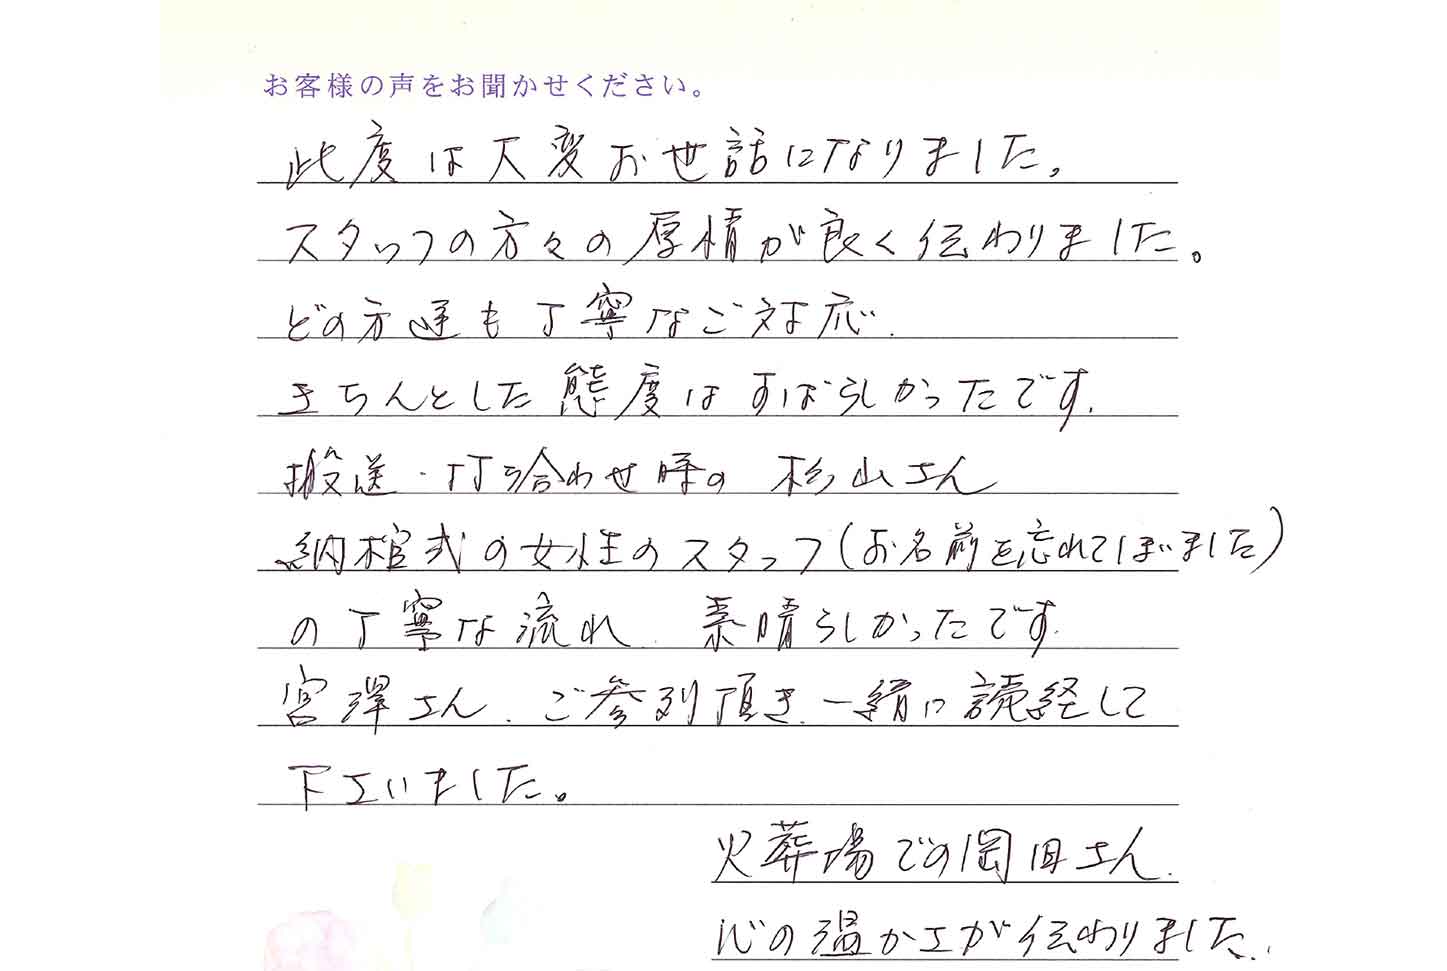 お客様の声をお聞かせください。
此度は大変お世話になりました。
スタッフの方々の厚情が良く伝わりました。
どの方達も丁寧なご対応、
きちんとした態度はすばらしかったです。
搬送・打ち合わせ時の 杉山さん
納棺式の女性のスタッフ(お名前を忘れてしまいました)
の丁寧な流れ、素晴らしかったです。
宮澤さん、ご参列頂き、一緒に読経して
下さいました。
火葬場での岡田さん、
心の温かさが伝わりました。